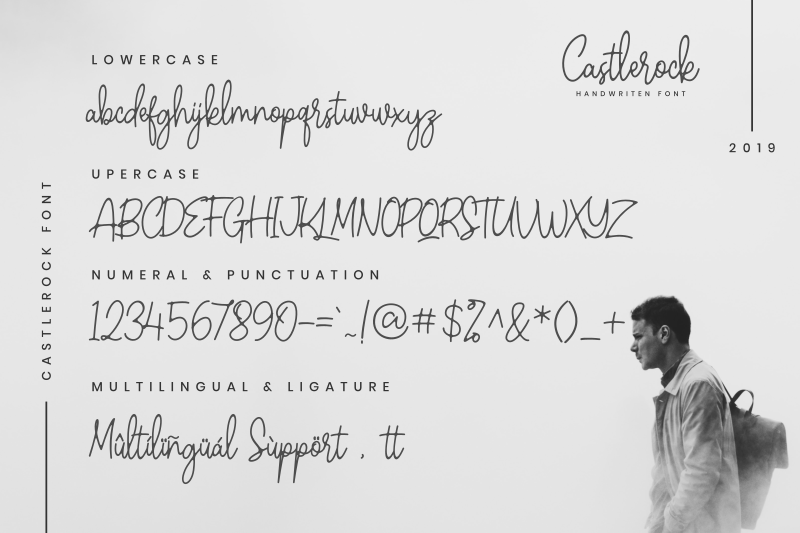 LOWERCASE
abcdefghijklmnopqrstuvwxyz
UPERCASE
ABCDEFGHIJKLMNOPQRSTUVWXYZ
NUMERAL & PUNCTUATION
1234567890-=`~!@#$%^&*()_+
MULTILINGUAL & LIGATURE
Mûltílïñgüál Sùppört , tt
CASTLEROCK FONT
Castlerock
HANDWRITEN FONT
2019